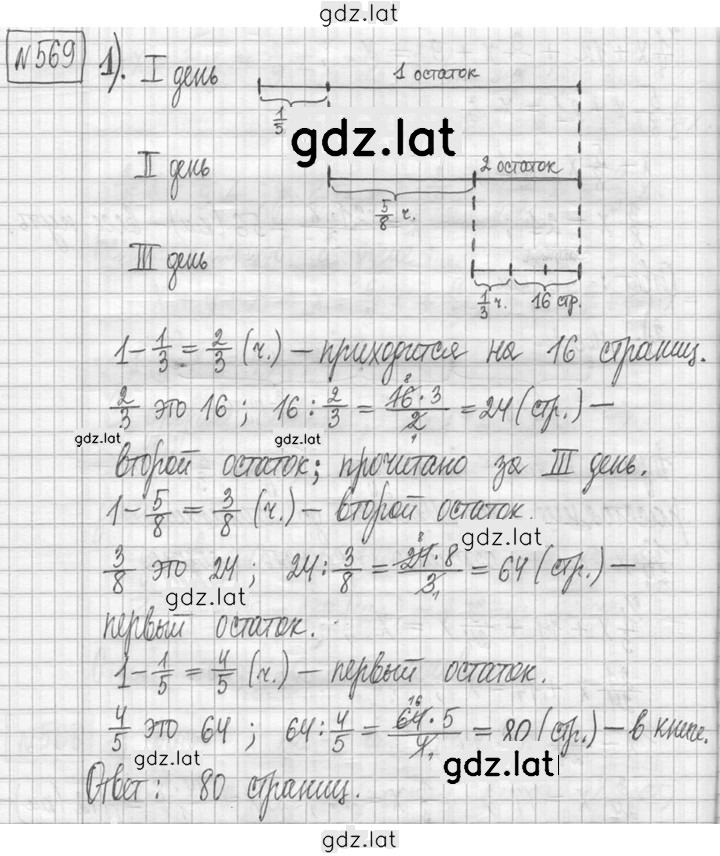 gdz.lat
№569 1). I день
1 остаток
1/5
gdz.lat
II день
2 остаток
5/8 ч.
III день
1/3 ч. 16 стр.
1 - 1/3 = 2/3 (ч.) — приходится на 16 страниц.
2/3 это 16; 16 : 2/3 = 16·3/2 = 24 (стр.) —
gdz.lat
второй остаток; прочитано за III день.
1 - 5/8 = 3/8 (ч.) — второй остаток.
gdz.lat
3/8 это 24; 24 : 3/8 = 24·8/3 = 64 (стр.) —
gdz.lat
первый остаток.
1 - 1/5 = 4/5 (ч.) — первый остаток.
4/5 это 64; 64 : 4/5 = 64·5/4 = 80 (стр.) — в книге.
gdz.lat
gdz.lat
Ответ: 80 страниц.
gdz.lat